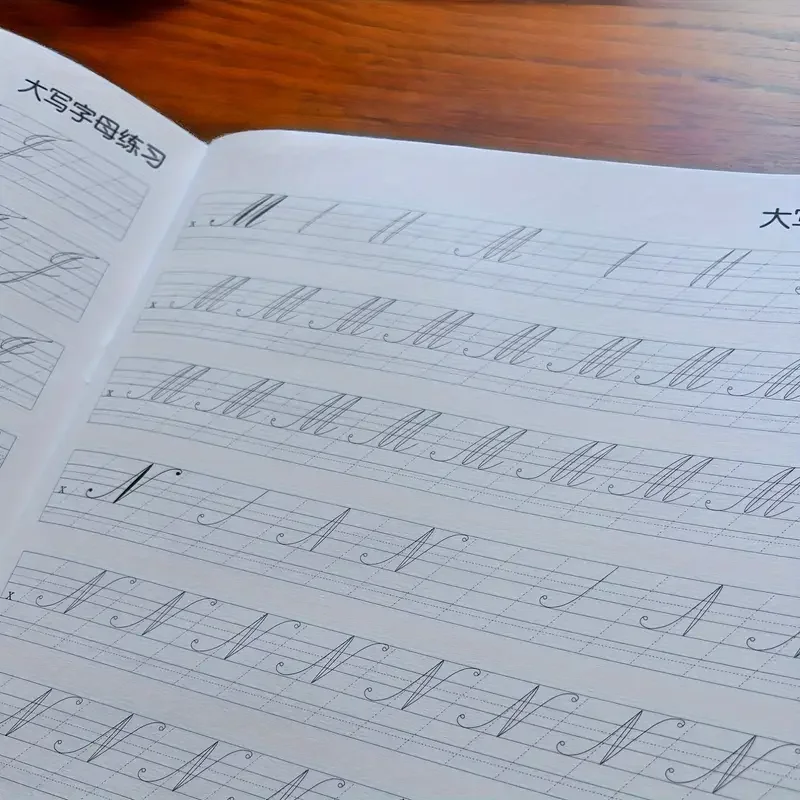 大写字母练习
J
J J
J
大
x M M
x M M M M M M M M
x M M M M M M M M
x N N
x N N N N N N N N
N N N N